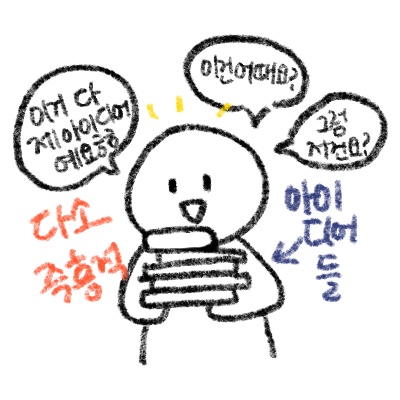 이거 다
제 아이디어
에요ㅎㅎ
이건어때요?
그럼
저건요?
다소
즉흥적
아이
디어
들